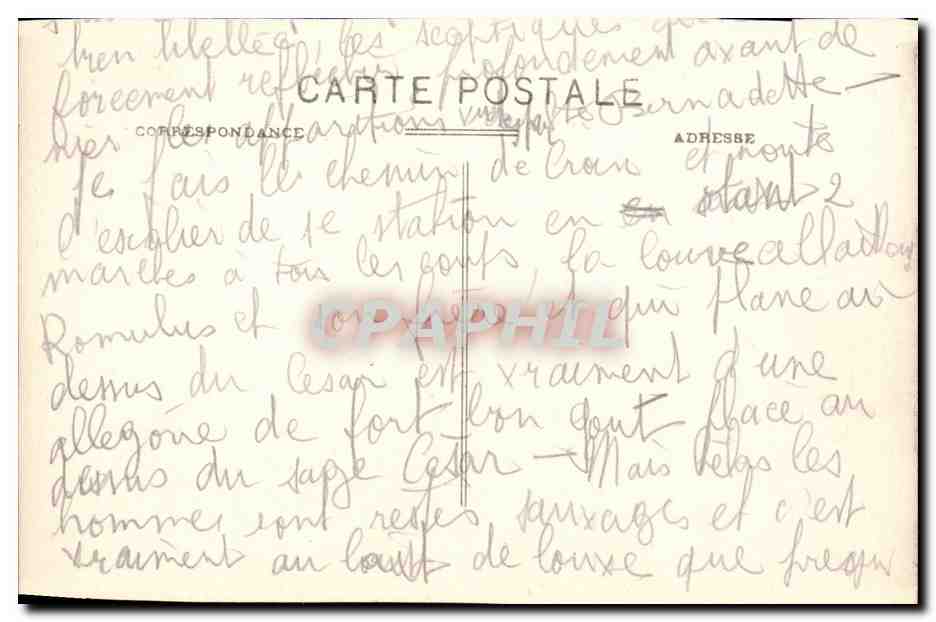 bien libellée, les sceptiques
forcement reflechir profondement avant de
CARTE POSTALE
nier les apparitions à Ste Bernadette —
CORRESPONDANCE
ADRESSE
je fais le chemin de Croix et monte
l'escalier de 1e station en en étant 2
marches à tous les gouts, la louve allaitant
Romulus et son frère et qui plane au
CPAPHIL
dessus du Cesar est vraiment d'une
allegorie de fort bon gout place au
dessus du sage César — Mais hélas les
hommes sont restés sauvages et c'est
vraiment au lait de louve que